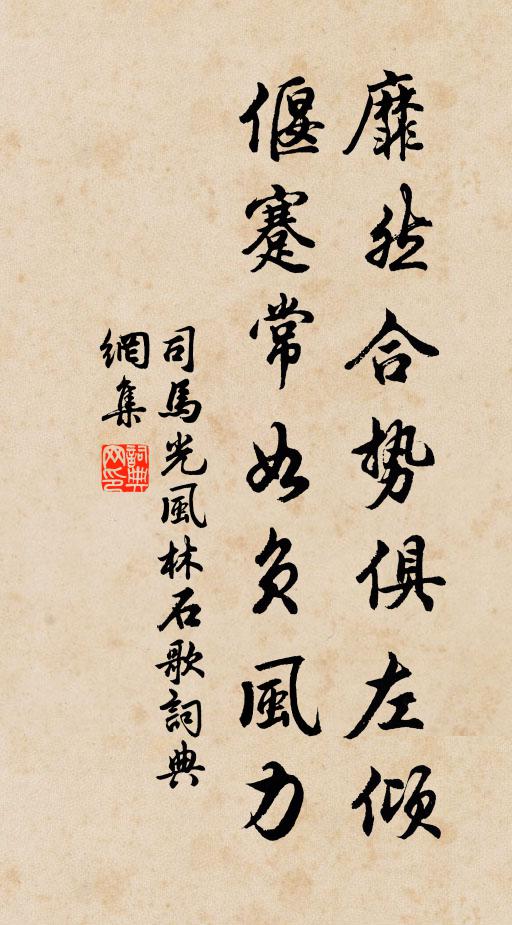 靡然合势俱左倾
偃蹇常如负風力
司馬光風林石歌詞典
網集
詞典网印